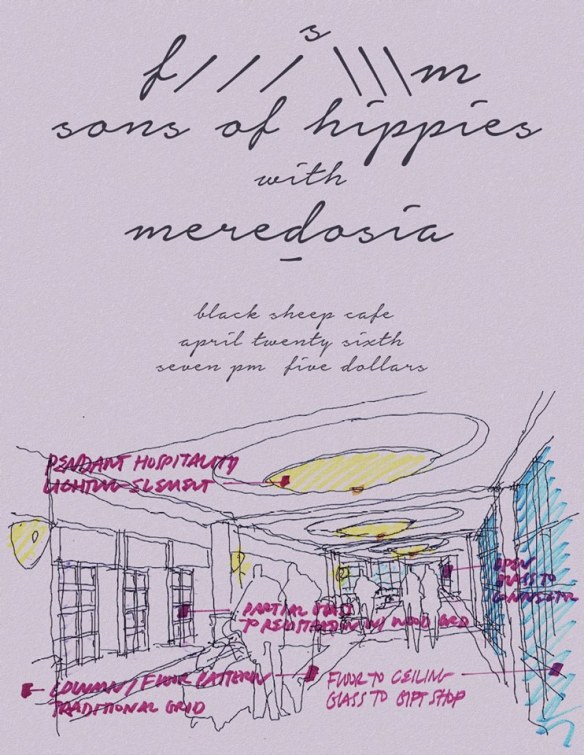 s
f///\\\m
sons of hippies
with
meredosia
black sheep cafe
april twenty sixth
seven pm five dollars
PENDANT HOSPITALITY
LIGHTING ELEMENT
OPEN
GLASS TO
PARTIAL
TO REGISTRATION W/ WOOD
COLUMN/FLOOR PATTERN
TRADITIONAL GRID
FLOOR TO CEILING
GLASS TO GIFT SHOP